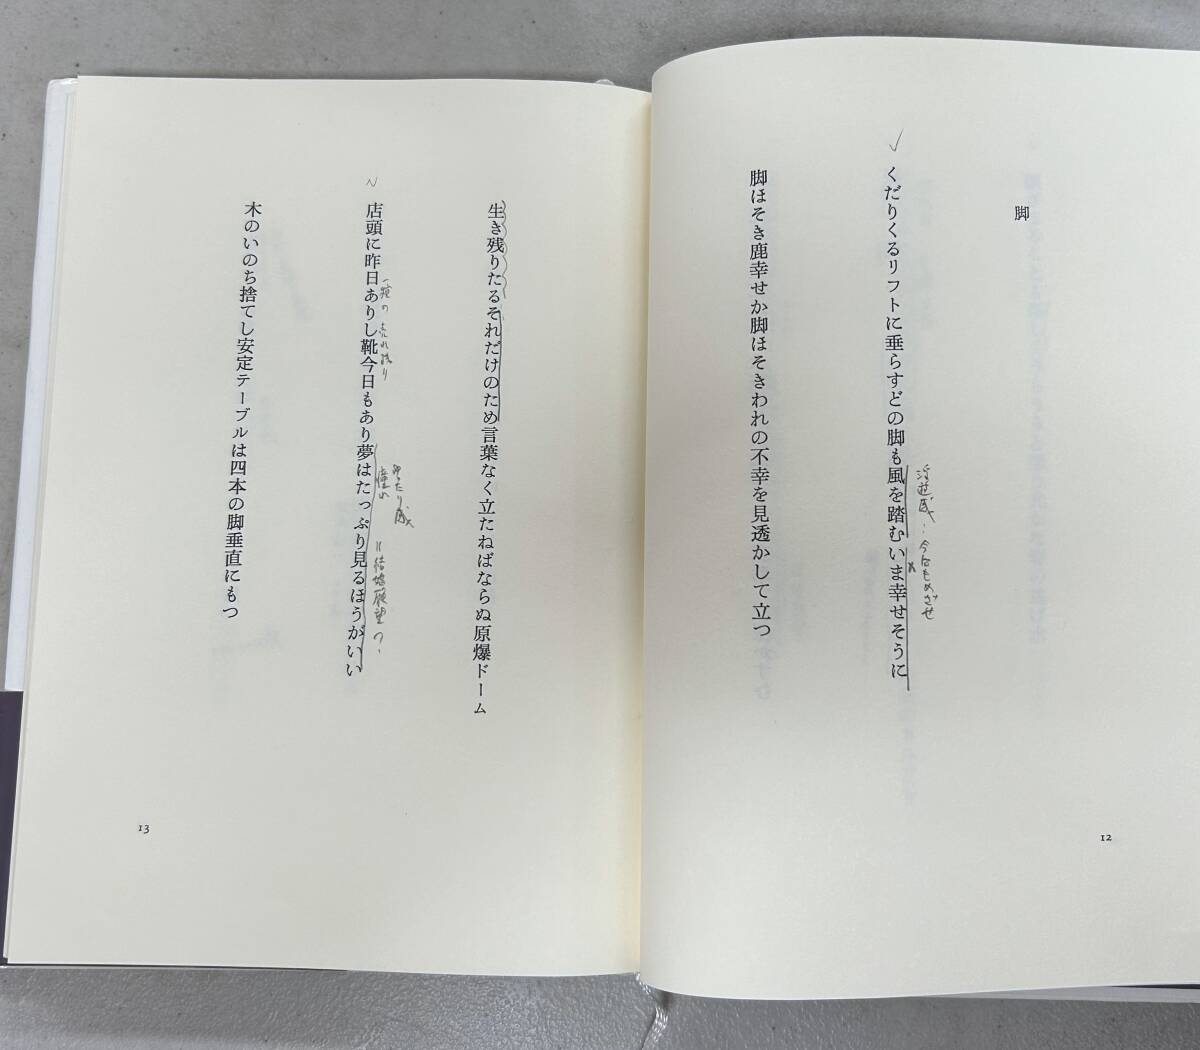 脚
くだりくるリフトに垂らすどの脚も風を踏むいま幸せそうに
浮遊感・
脚ほそき鹿幸せか脚ほそきわれの不幸を見透かして立つ
12
生き残りたるそれだけのため言葉なく立たねばならぬ原爆ドーム
店頭に昨日ありし靴今日もあり夢はたっぷり見るほうがいい
の売れ残り
ゆたり感
＝結婚願望
木のいのち捨てし安定テーブルは四本の脚垂直にもつ
13